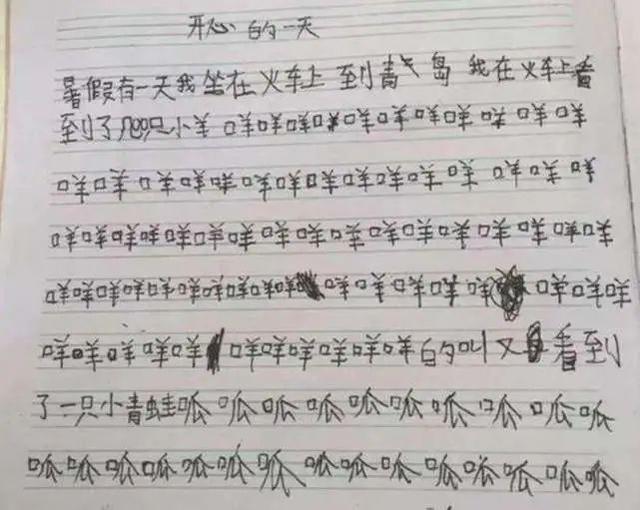 开心的一天
暑假有一天我坐在火车上到青岛我在火车上看
到了几只小羊咩咩咩咩咩咩咩咩咩咩咩
咩咩咩咩咩咩咩咩咩咩咩咩咩咩咩
咩咩咩咩咩咩咩咩咩咩咩咩咩咩咩咩咩咩
咩咩咩咩咩咩咩咩咩咩咩咩咩咩咩咩咩咩
咩咩咩咩咩咩咩咩咩咩咩的叫又看到
了一只小青蛙呱呱呱呱呱呱呱呱呱呱
呱呱呱呱呱呱呱呱呱呱呱呱呱呱呱